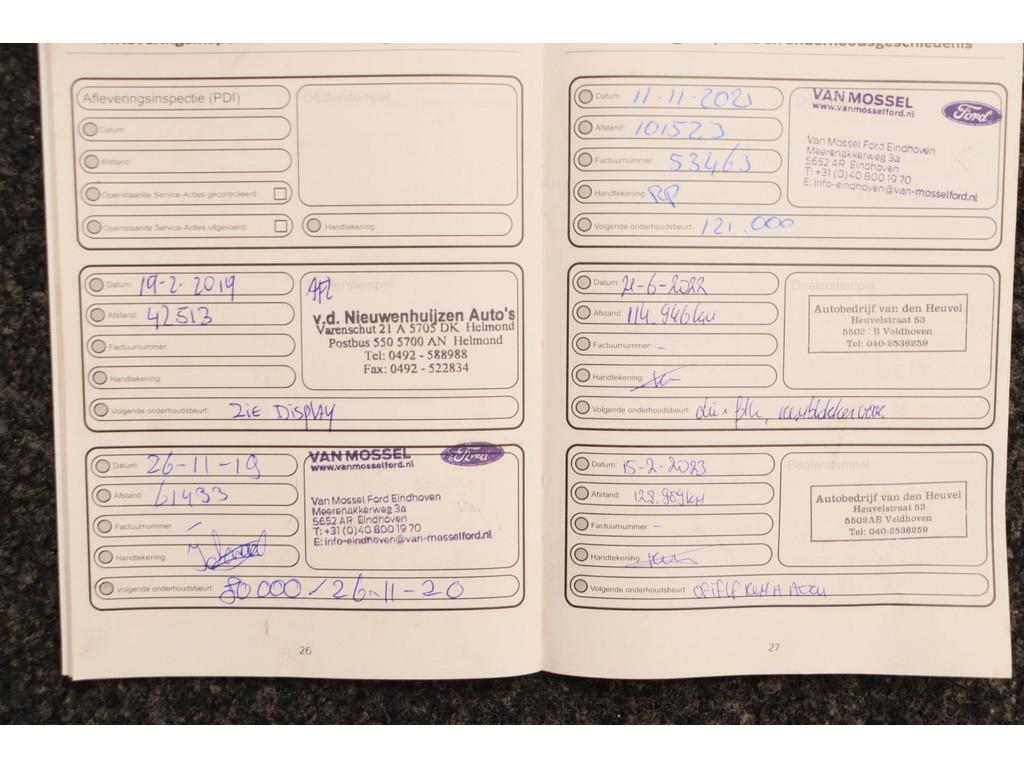 Afleveringsinspectie (PDI)
Dealerstempel
Datum:
Afstand:
Openstaande Service-Acties gecontroleerd:
Openstaande Service-Acties uitgevoerd:
Handtekening
Datum: 19-2-2019
Afstand: 42513
Factuurnummer:
Handtekening:
Volgende onderhoudsbeurt: ZIE DISPLAY
AFL
v.d. Nieuwenhuijzen Auto's
Varenschut 21 A 5705 DK Helmond
Postbus 550 5700 AN Helmond
Tel: 0492 - 588988
Fax: 0492 - 522834
Datum: 26-11-19
Afstand: 61433
Factuurnummer:
Handtekening:
Volgende onderhoudsbeurt: 80000 / 26-11-20
VAN MOSSEL
www.vanmosselford.nl
Ford
Van Mossel Ford Eindhoven
Meerenakkerweg 3a
5652 AR Eindhoven
T: +31 (0)40 800 19 70
E: info-eindhoven@van-mosselford.nl
26
onderhoudsgeschiedenis
Datum: 11-11-2021
Afstand: 101523
Factuurnummer: 53463
Handtekening: RP
Volgende onderhoudsbeurt: 121.000
VAN MOSSEL
www.vanmosselford.nl
Ford
Van Mossel Ford Eindhoven
Meerenakkerweg 3a
5652 AR Eindhoven
T: +31 (0)40 800 19 70
E: info-eindhoven@van-mosselford.nl
Datum: 21-6-2022
Afstand: 114.946 km
Factuurnummer: -
Handtekening:
Volgende onderhoudsbeurt:
Dealerstempel
Autobedrijf van den Heuvel
Heuvelstraat 53
5502 B Veldhoven
Tel: 040-2536259
Datum: 15-2-2023
Afstand: 128.909 km
Factuurnummer: -
Handtekening:
Volgende onderhoudsbeurt:
Dealerstempel
Autobedrijf van den Heuvel
Heuvelstraat 53
5502AB Veldhoven
Tel: 040-2536259
27